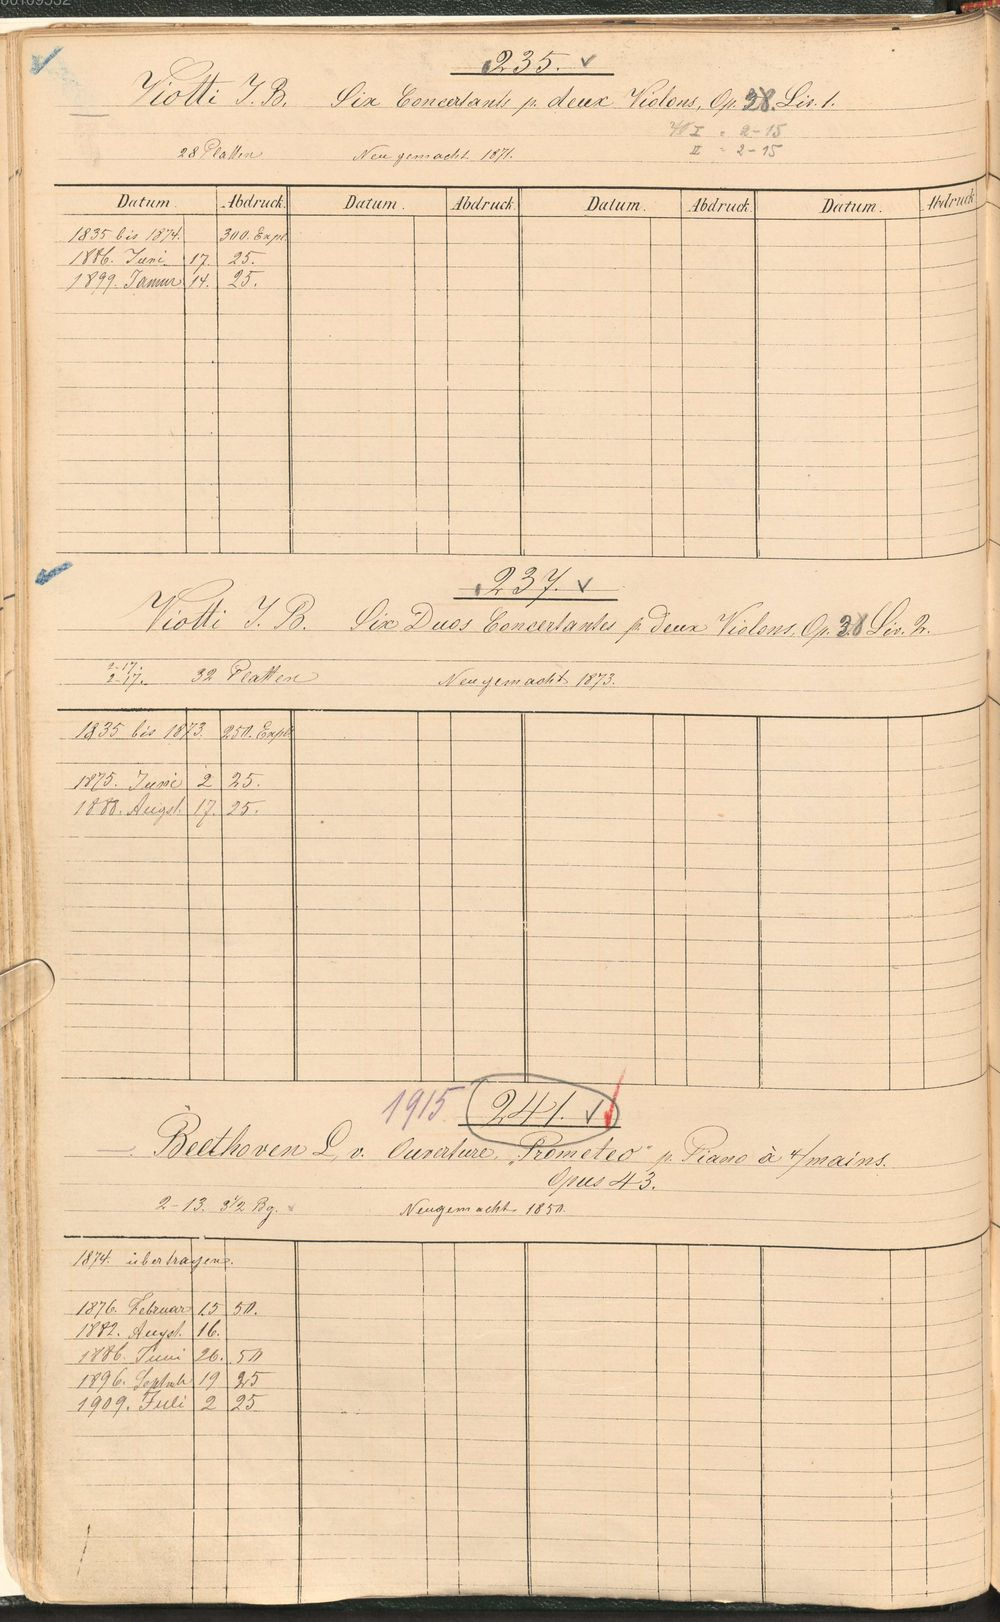 235. ✓
Viotti J. B. Six Concertants p. deux Violons, Op. 38. Liv. 1.
I = 2-15
II = 2-15
28 Platten Neu gemacht 1871.
Datum. Abdruck. Datum. Abdruck. Datum. Abdruck. Datum. Abdruck.
1835 bis 1874. 300. Expl.
1886. Juni 17. 25.
1899. Januar 14. 25.
237. ✓
Viotti J. B. Six Duos Concertantes p. deux Violons, Op. 38 Liv. 2.
2-17.
2-17. 32 Platten Neu gemacht 1873.
1835 bis 1873. 250. Expl.
1875. Juni 2 25.
1888. Augst. 17. 25.
1915 241. ✓
Beethoven L. v. Ouverture, „Prometeo" p. Piano à 4/mains.
Opus 43.
2-13. 3 1/2 Bg. Neugemacht 1850.
1874. übertragen.
1876. Februar 15 50.
1882. Augst. 16.
1886. Juni 26. 50
1896. Septmb 19 25
1909. Juli 2 25